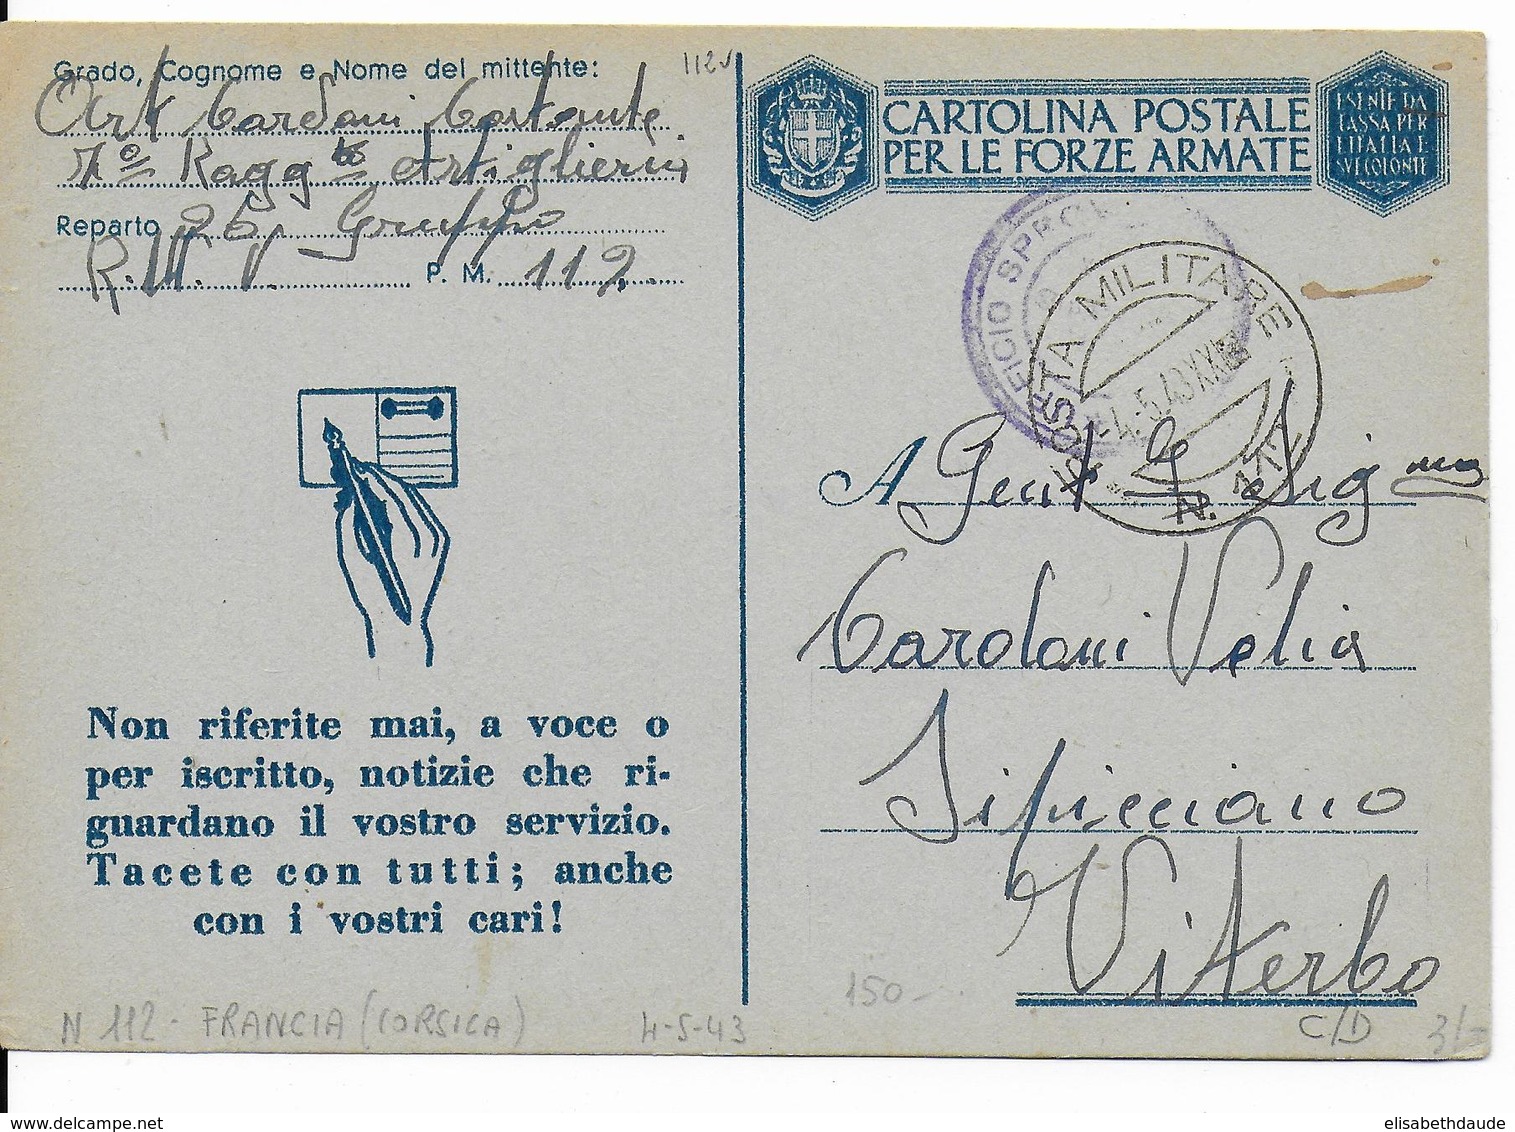 Grado, Cognome e Nome del mittente:
Art Cardoni Costante
7° Ragg to Artiglieria
Reparto 26. Gruppo
P. M. 112.
112
CARTOLINA POSTALE
PER LE FORZE ARMATE
ESENTE DA
TASSA PER
L'ITALIA E
SUE COLONIE
POSTA MILITARE
4.5.43 XXI
N. 112
A Gent le Sig na
Cardoni Velia
Sipicciano
Viterbo
Non riferite mai, a voce o
per iscritto, notizie che ri-
guardano il vostro servizio.
Tacete con tutti; anche
con i vostri cari!
N 112 - FRANCIA (CORSICA) 4-5-43
150-
C/D
3/-
delcampe.net
elisabethdaude